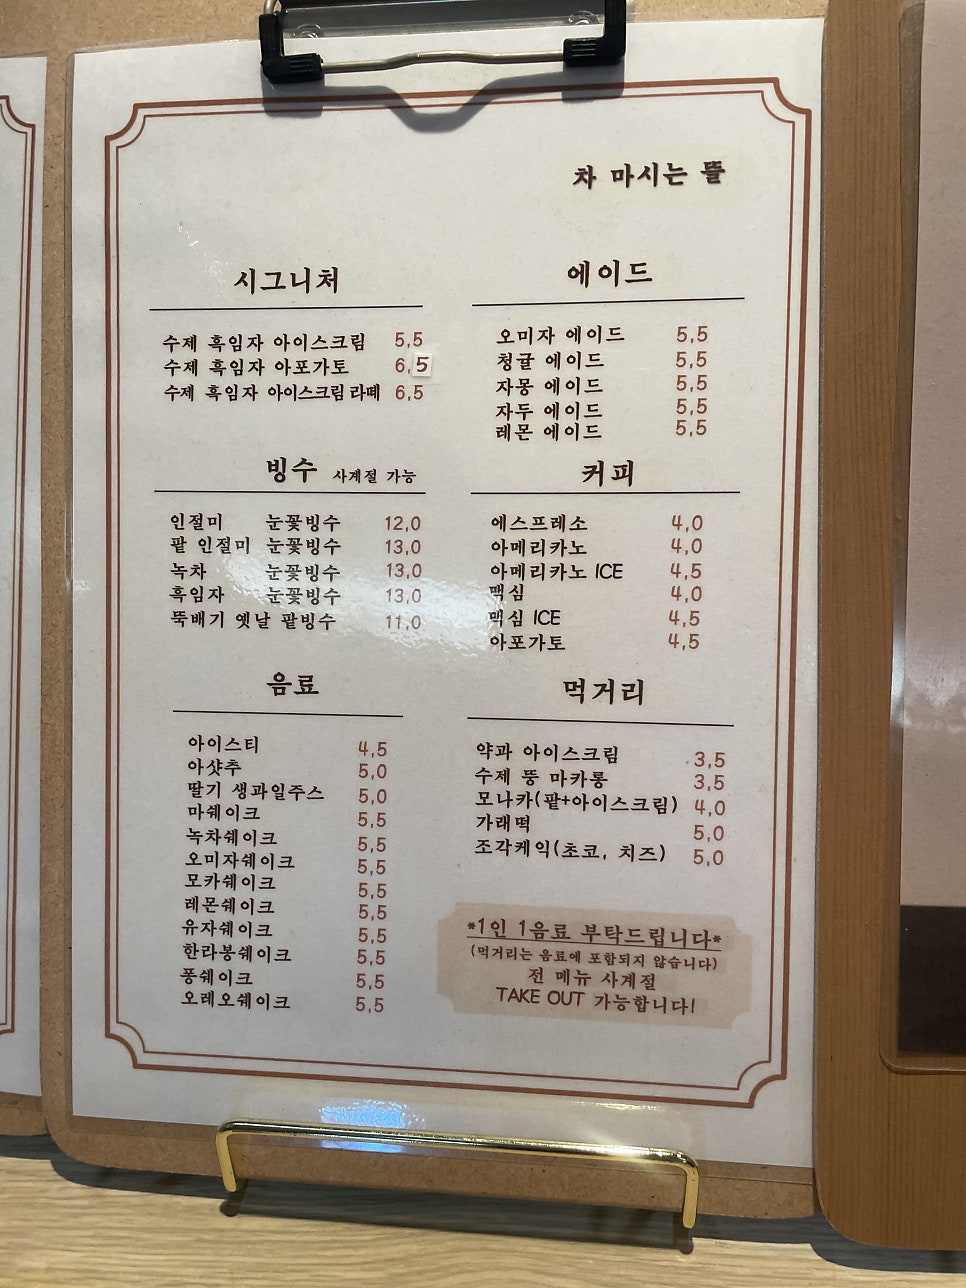 차 마시는 뜰
시그니처
수제 흑임자 아이스크림 5,5
수제 흑임자 아포가토 6,5
수제 흑임자 아이스크림 라떼 6,5
빙수 사계절 가능
인절미 눈꽃빙수 12,0
팥 인절미 눈꽃빙수 13,0
녹차 눈꽃빙수 13,0
흑임자 눈꽃빙수 13,0
뚝배기 옛날 팥빙수 11,0
음료
아이스티 4,5
아샷추 5,0
딸기 생과일주스 5,0
마쉐이크 5,5
녹차쉐이크 5,5
오미자쉐이크 5,5
모카쉐이크 5,5
레몬쉐이크 5,5
유자쉐이크 5,5
한라봉쉐이크 5,5
퐁쉐이크 5,5
오레오쉐이크 5,5
에이드
오미자 에이드 5,5
청귤 에이드 5,5
자몽 에이드 5,5
자두 에이드 5,5
레몬 에이드 5,5
커피
에스프레소 4,0
아메리카노 4,0
아메리카노 ICE 4,5
맥심 4,0
맥심 ICE 4,5
아포가토 4,5
먹거리
약과 아이스크림 3,5
수제 뚱 마카롱 3,5
모나카(팥+아이스크림) 4,0
가래떡 5,0
조각케익(초코, 치즈) 5,0
*1인 1음료 부탁드립니다*
(먹거리는 음료에 포함되지 않습니다)
전 메뉴 사계절
TAKE OUT 가능합니다!